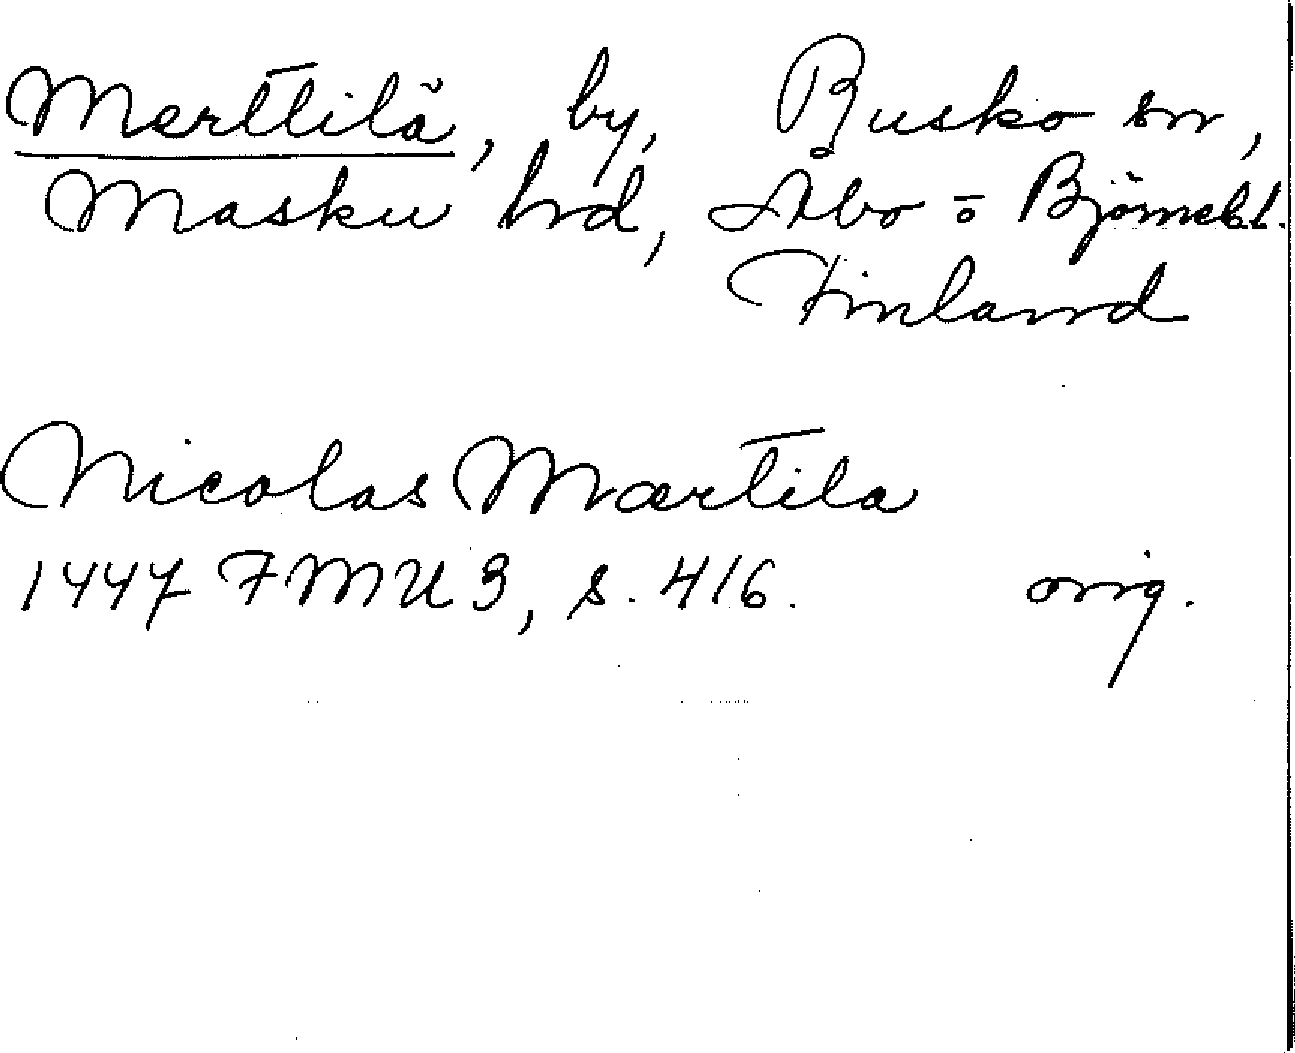 Merttilä, by, Rusko sn,
Masku hd, Åbo o Björnebl.
Finland
Nicolas Mærtila
1447 FMU 3, s. 416. orig.